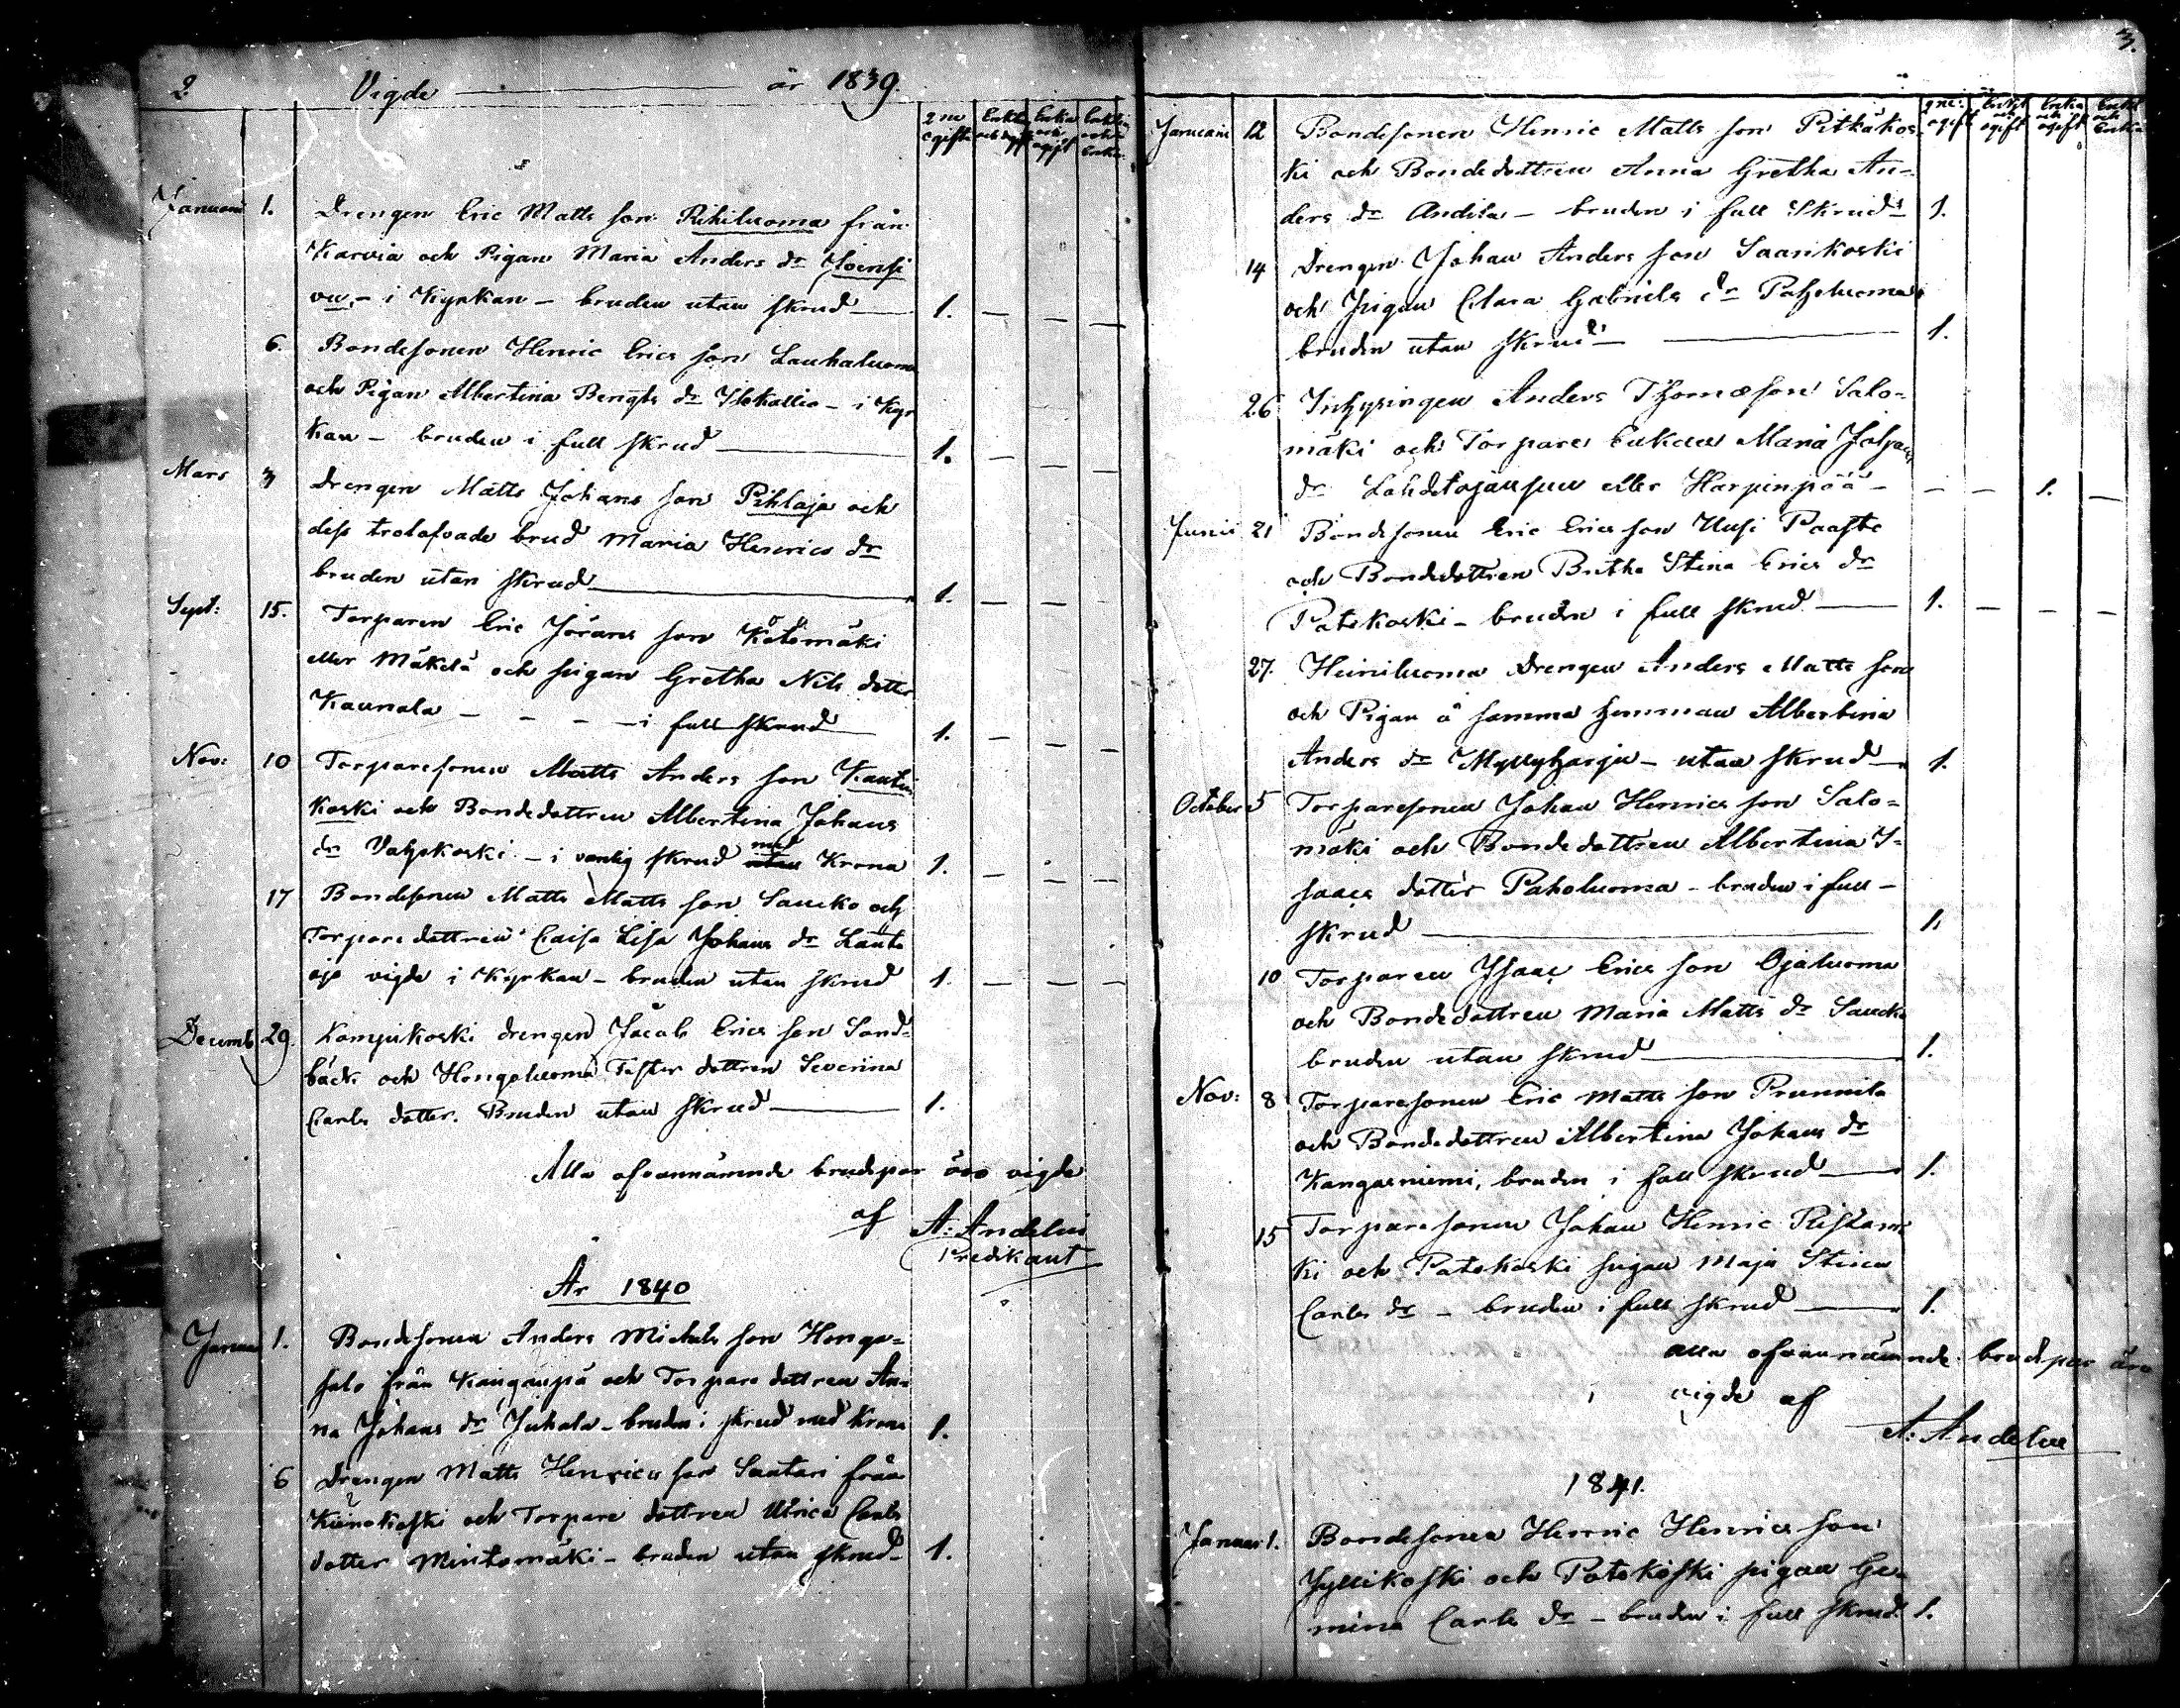 2. Vigde år 1839.
2 ne ogifte Enkling och ogift Enka och ogift Enkling och Enka
Januarii 1. Drengen Eric Matts son Rihiluoma från
Karvia och Pigan Maria Anders dr Joensi
vu - i Kyrkan - bruden utan skrud 1. — — —
6. Bondesonen Henric Erics son Lauhaluoma
och Pigan Albertina Bengts dr Ylikallio - i Kyr
kan - bruden i full skrud 1. — — —
Mars 3 Drengen Matts Johans son Pihlaja och
dess trolofvade brud Maria Henrics dr
bruden utan skrud 1. — —
Sept: 15. Torparen Eric Jörans son Kötömäki
eller Mäkelä och pigan Gretha Nils dotter
Kaunola - - - - i full skrud 1. — — —
Nov: 10 Torparesonen Matts Anders son Kauti
koski och Bondedottren Albertina Johans
dr Valjskoski - i vanlig skrud utan med Krona 1. — — —
17 Bondesonen Matts Matts son Saucko och
Torparedottren Caisa Lisa Johans dr Lauto
oja vigde i Kyrkan - bruden utan skrud 1. — — —
Decemb 29. Kompikoski drengen Jacob Erics son Sand-
bäck och Hongoluoma Foster dottren Severina
Carls dotter. Bruden utan skrud 1.
Alla ofvannämnde brudepar äro vigde
af A: Andelin
Predikant
År 1840
Januar 1. Bondesonen Anders Michels son Hongo=
salo från Kangaupä och Torpare dottren An=
na Johans dr Juhola - bruden i skrud med Krona 1.
6 Drengen Matts Henrics son Santari från
och Torpare dottren Ulrica Carls
dotter Mintomäki - bruden utan skrud - 1.
3.
2 ne: ogift Enkl och ogift Enka och ogift Enkl och Enka
Januarii 12 Bondesonen Henric Matts son Pitkäkos
ki och Bondedottren Anna Gretha An=
ders dr Andila - bruden i full Skrud - 1.
14 Drengen Johan Anders son Saankoski
och Pigan Clara Gabriels dr Paholuoma
bruden utan skrud - 1.
26 Inhysingen Anders Thomæson Salo=
mäki och Torpare Enkan Maria Johans
dr Lähdetojänsuu eller Harpinpää - — — 1. —
Junii 21 Bondesonen Eric Erics son Uusi Paaste
och Bondedottren Britha Stina Erics dr
Patokoski - bruden i full skrud 1. — — —
27. Heiniluoma Drengen Anders Matts son
och Pigan å samma hemman Albertina
Anders dr Myllyharju - utan skrud 1.
October 5 Torparesonen Johan Henrics son Salo=
mäki och Bondedottren Albertina I=
saacs dotter Paholuoma - bruden i full -
skrud 1.
10 Torparen Isaac Erics son Ojaluoma
och Bondedottren Maria Matts dr Saucko
bruden utan skrud 1.
Nov: 8 Torparesonen Eric Matts son Prunnila
och Bondedottren Albertina Johans dr
Kangasniemi, bruden i full skrud 1.
15 Torparesonen Johan Henric Ristani
ki och Patokoski pigan Maja Stina
Carls dr - bruden i full skrud 1.
alla ofvannämnde brudpar äro
vigde af
A: Andelin
1841.
Januar. 1. Bondesonen Henric Henrics son
Jyllikoski och Patokoski pigan Ge=
mina Carls dr - bruden i full skrud. 1.